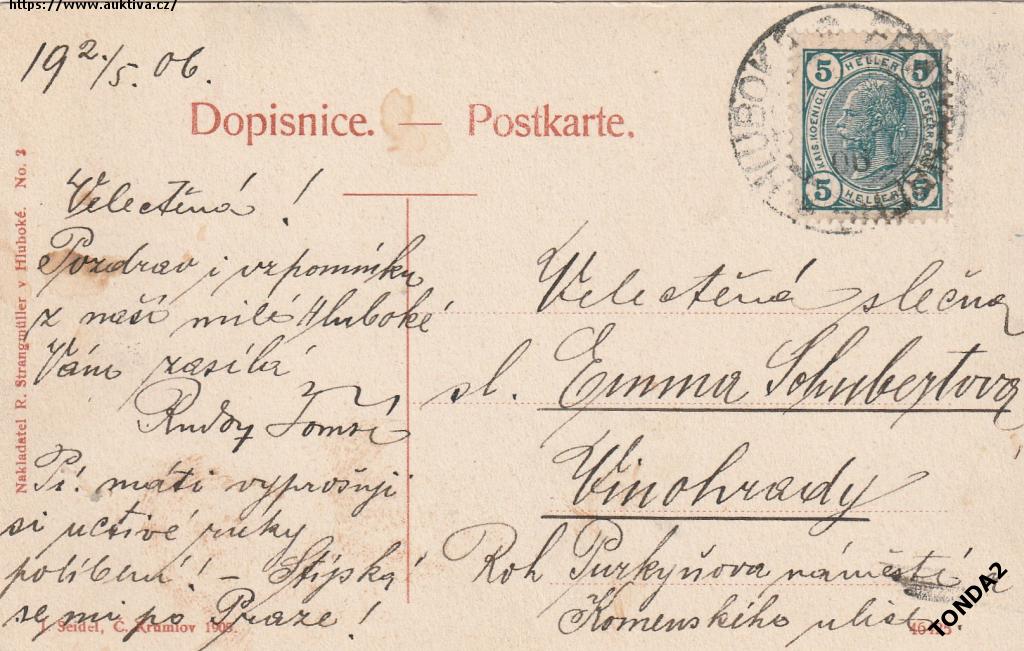 https://www.auktiva.cz/
19 2./5. 06.
Dopisnice. — Postkarte.
Velectěná!
Pozdrav i vzpomínku
z naší milé Hluboké
Vám zasílá
Rudolf
Pí. máti vyprošuji
si uctivé ruky
políbení! – Stýská
se mi po Praze!
Velectěná slečna
sl. Emma Schubertova
Vinohrady
Roh Purkyňova náměstí
Komenského ulice.
5 HELLER 5
KAIS. KOENIGL.
OESTERR.
5 HELLER 5
HLUBOKÁ
06
Nakladatel R. Strangmüller v Hluboké. No. 3
J. Seidel, Č. Krumlov 1905.
TONDA2